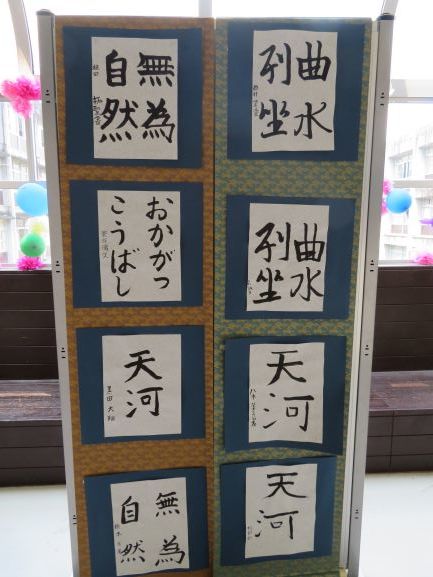 無為
自然
おかがっ
こうばし
天河
無為
自然
曲水
列坐
曲水
列坐
天河
天河